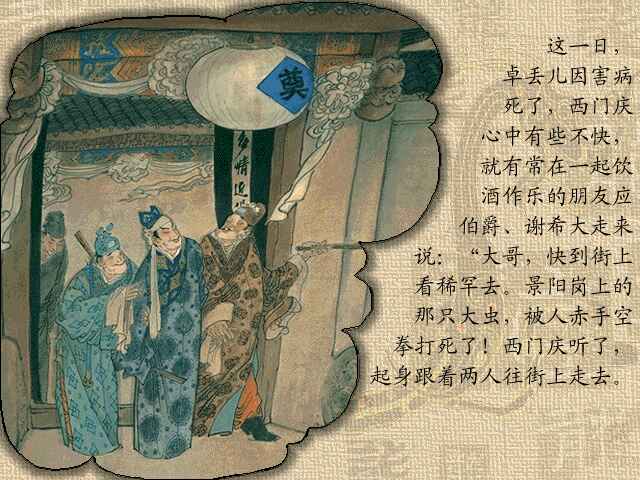 这一日，
卓丢儿因害病
死了，西门庆
心中有些不快，
就有常在一起饮
酒作乐的朋友应
伯爵、谢希大走来
说：“大哥，快到街上
看稀罕去。景阳岗上的
那只大虫，被人赤手空
拳打死了！西门庆听了，
起身跟着两人往街上走去。
奠